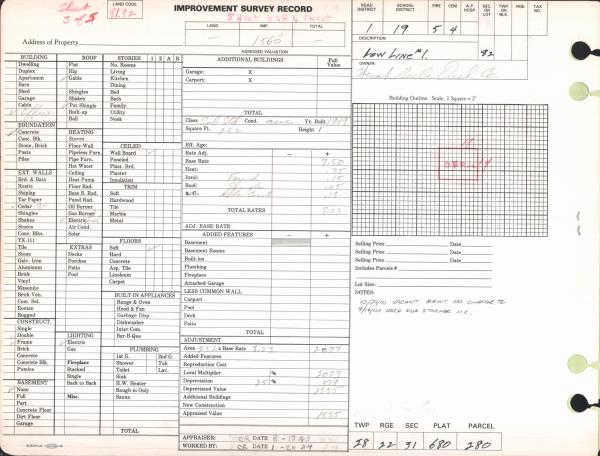 Sheet 3 of 5
LAND CODE
81.92
IMPROVEMENT SURVEY RECORD
LAND IMP. TOTAL
— 1560 —
Address of Property
ASSESSED VALUATION
ROAD DISTRICT SCHOOL DISTRICT FIRE CEM. A.P. HOSP. SEC. OR LOT TWP. OR BLK. RGE. TAX NO.
1 19 5 4
DESCRIPTION
LOW LINE #1. 82
OWNER:
BUILDING
Dwelling
Duplex
Apartment
Barn
Shed
Garage
Cabin
Office
FOUNDATION
Concrete
Conc. Blk.
Stone, Brick
Posts
Piles
EXT. WALLS
Brd. & Bats
Rustic
Shiplap
Tar Paper
Cedar
Shingles
Shakes
Stucco
Conc. Blks.
TX-111
Tile
Stone
Galv. Iron
Aluminum
Brick
Vinyl
Masonite
Brick Ven.
Com. Sel.
Roman
Rugged
CONSTRUCT.
Single
Double
Frame
Brick
Concrete
Concrete Blk.
Pumice
BASEMENT
None
Full
Part
Concrete Floor
Dirt Floor
Garage
ROOF
Flat
Hip
Gable
Shingles
Shakes
Pat Shingle
Built-up
Roll
HEATING
Floor-Wall
Pipeless Furn.
Pipe Furn.
Hot Water
Ceiling
Heat Pump
Floor Rad.
Base B. Rad.
Panel Rad.
Oil Burner
Gas Burner
Electric
Air Cond.
Solar
EXTRAS
Decks
Porches
Patio
Pool
LIGHTING
Electric
Gas
Fireplace
Stacked
Single
Back to Back
Misc.
STORIES 1 2 A B
No. Rooms
Living
Kitchen
Dining
Bed
Bath
Utility
Nook
CEILED
Wall Board
Paneled
Plast. Brd.
Plaster
Insulation
TRIM
Soft
Hardwood
Tile
Marble
Metal
FLOORS
Soft
Hard
Concrete
Asp. Tile
Linoleum
Carpet
BUILT-IN APPLIANCES
Range & Oven
Hood & Fan
Garbage Disp.
Dishwasher
Inter Com.
Bar-B-Que
PLUMBING
1st G. 2nd G.
Shower Tub
Toilet Lav.
Sink
H.W. Heater
Rough-in Only
Sauna
TOTAL
ADDITIONAL BUILDINGS Full Value
Garage: X
Carport: X
TOTAL
Class Cond. ave Yr. Built 1969
Square Ft. 252 Height 1
Eff. Age:
Rate Adj. — +
Base Rate 7.50
Heat: .35
Insul: .15
Roof: .05
A.C.: .18
TOTAL RATES 8.23
ADJ. BASE RATE
ADDED FEATURES — +
Basement
Basement Rooms
Built-ins
Plumbing
Fireplace
Attached Garage
LESS COMMON WALL
Carport
Pool
Deck
Patio
TOTAL
ADJUSTMENT
Area 252 x Base Rate 8.23 2073
Added Features
Reproduction Cost
Local Multiplier % 2073
Depreciation 25 % 518
Depreciated Value 1555
Additional Buildings
New Construction
Appraised Value 1555
APPRAISER: DATE 8-17-83
WORKED BY: CR DATE 1-24-84
Building Outline Scale, 1 Square = 2'
OFFICE
Selling Price Date
Selling Price Date
Selling Price Date
Includes Parcels #
Lot Size:
NOTES:
TWP RGE SEC PLAT PARCEL
28 22 31 680 280